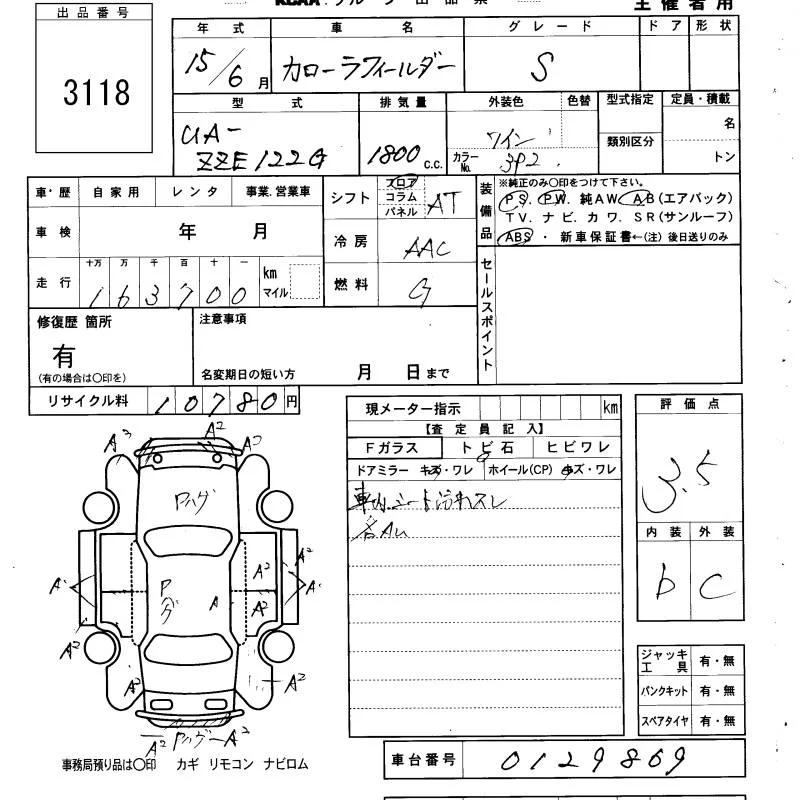 出品番号
3118
主催者用
年式 車名 グレード ドア 形状
15/6月 カローラフィールダー S
型式 排気量 外装色 色替 型式指定 定員・積載
UA-ZZE122G 1800 c.c. ワイン カラーNo. 3P2 類別区分 名 トン
車・歴 自家用 レンタ 事業.営業車
車検 年 月
走行 十万 万 千 百 十 一 km マイル
163700
シフト フロア コラム パネル AT
冷房 AAC
燃料 G
装備品 ※純正のみ〇印をつけて下さい。
PS. PW. 純AW. AB(エアバック)
TV. ナビ. カワ. SR(サンルーフ)
ABS ・ 新車保証書←(注) 後日送りのみ
セールスポイント
修復歴 箇所
有
(有の場合は〇印を)
注意事項
名変期日の短い方 月 日まで
リサイクル料 10780円
現メーター指示 km
【査定員記入】
Fガラス トビ石 ヒビワレ
ドアミラー キズ・ワレ ホイール(CP) キズ・ワレ
車内.シート汚れスレ
各AU
評価点
3.5
内装 外装
b C
ジャッキ工具 有・無
パンクキット 有・無
スペアタイヤ 有・無
A3 A2 A2
Pハゲ
A2
A1 A2 A1
Pハゲ A
A2
A2 A2
A2 A2
A2 PハゲA2
事務局預り品は〇印 カギ リモコン ナビロム
車台番号 0129869